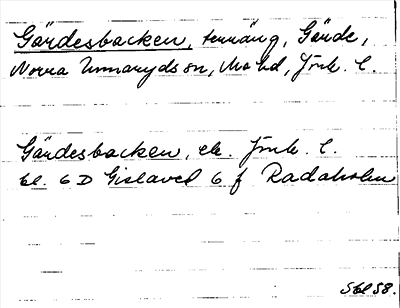 Gärdesbacken, terräng, Gärde,
Norra Unnaryds sn, Mo hd, Jmk. l.
Gärdesbacken, ek. Jmk. l.
bl. 6 D Gislaved 6 f Radaholm
Stbl 58.